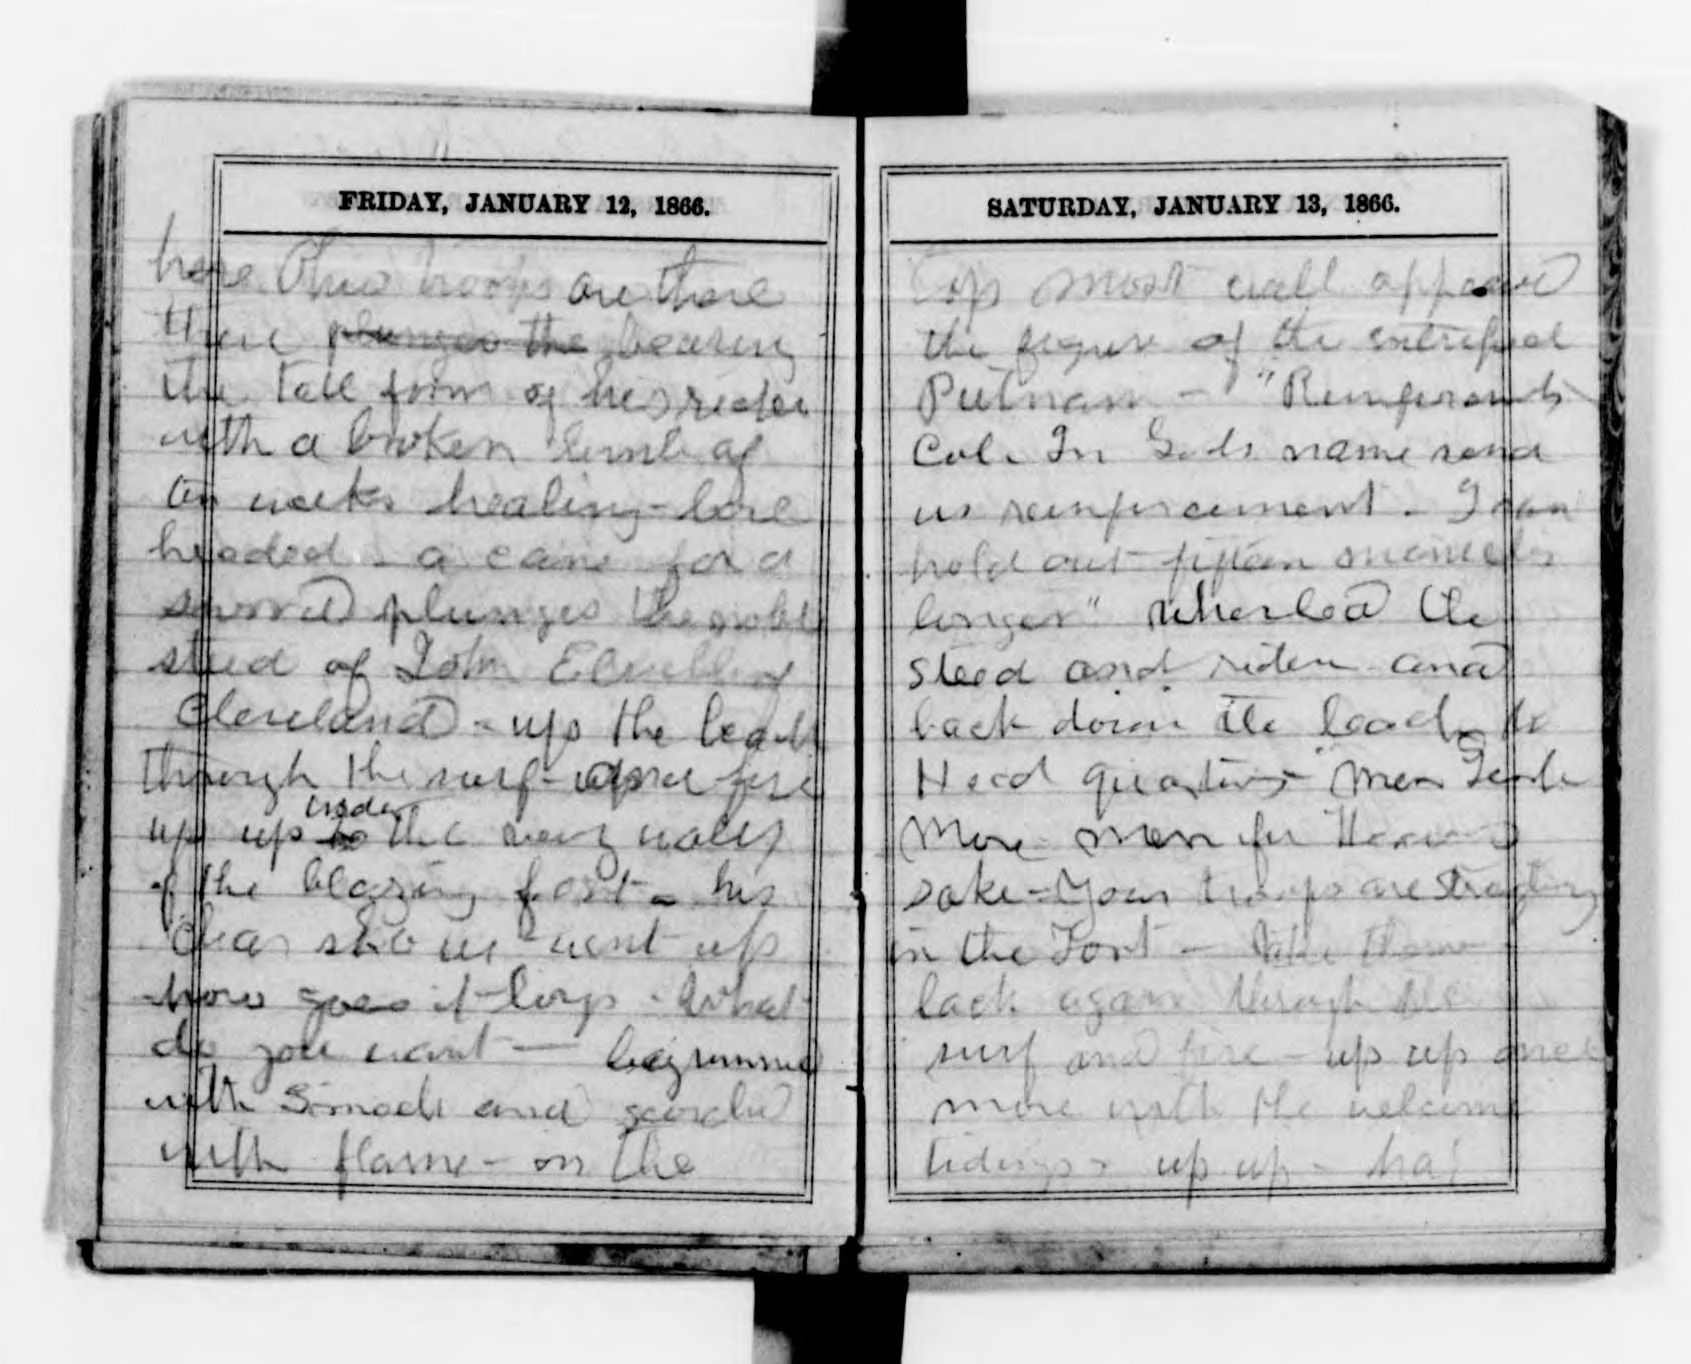 FRIDAY, JANUARY 12, 1866.
here Ohio troops are there
there plunges the bearing
the tall form of his rider
with a broken limb of
ten weeks healing - bare
headed - a cane for a
sword plunges the noble
steed of John Elwell of
Cleveland - up the beach
through the surf - upon fire
up up to under the very walls
of the blazing fort - his
clear shout went up
how goes it boys - What
do you want - begrimmed
with smoke and scorched
with flame - on the
SATURDAY, JANUARY 13, 1866.
Top most wall appeared
the figure of the intrepid
Putnam - "Reinforcements
Col. In Gods name send
us reinforcement - I can
hold out fifteen minutes
longer" wheeled the
steed and rider and
back down the beach to
Head quarters - "Men
More men for Heavens
sake - Your troops are
in the Fort -
back again through the
surf and fire - up up once
more with the welcome
tidings - up up - ha!